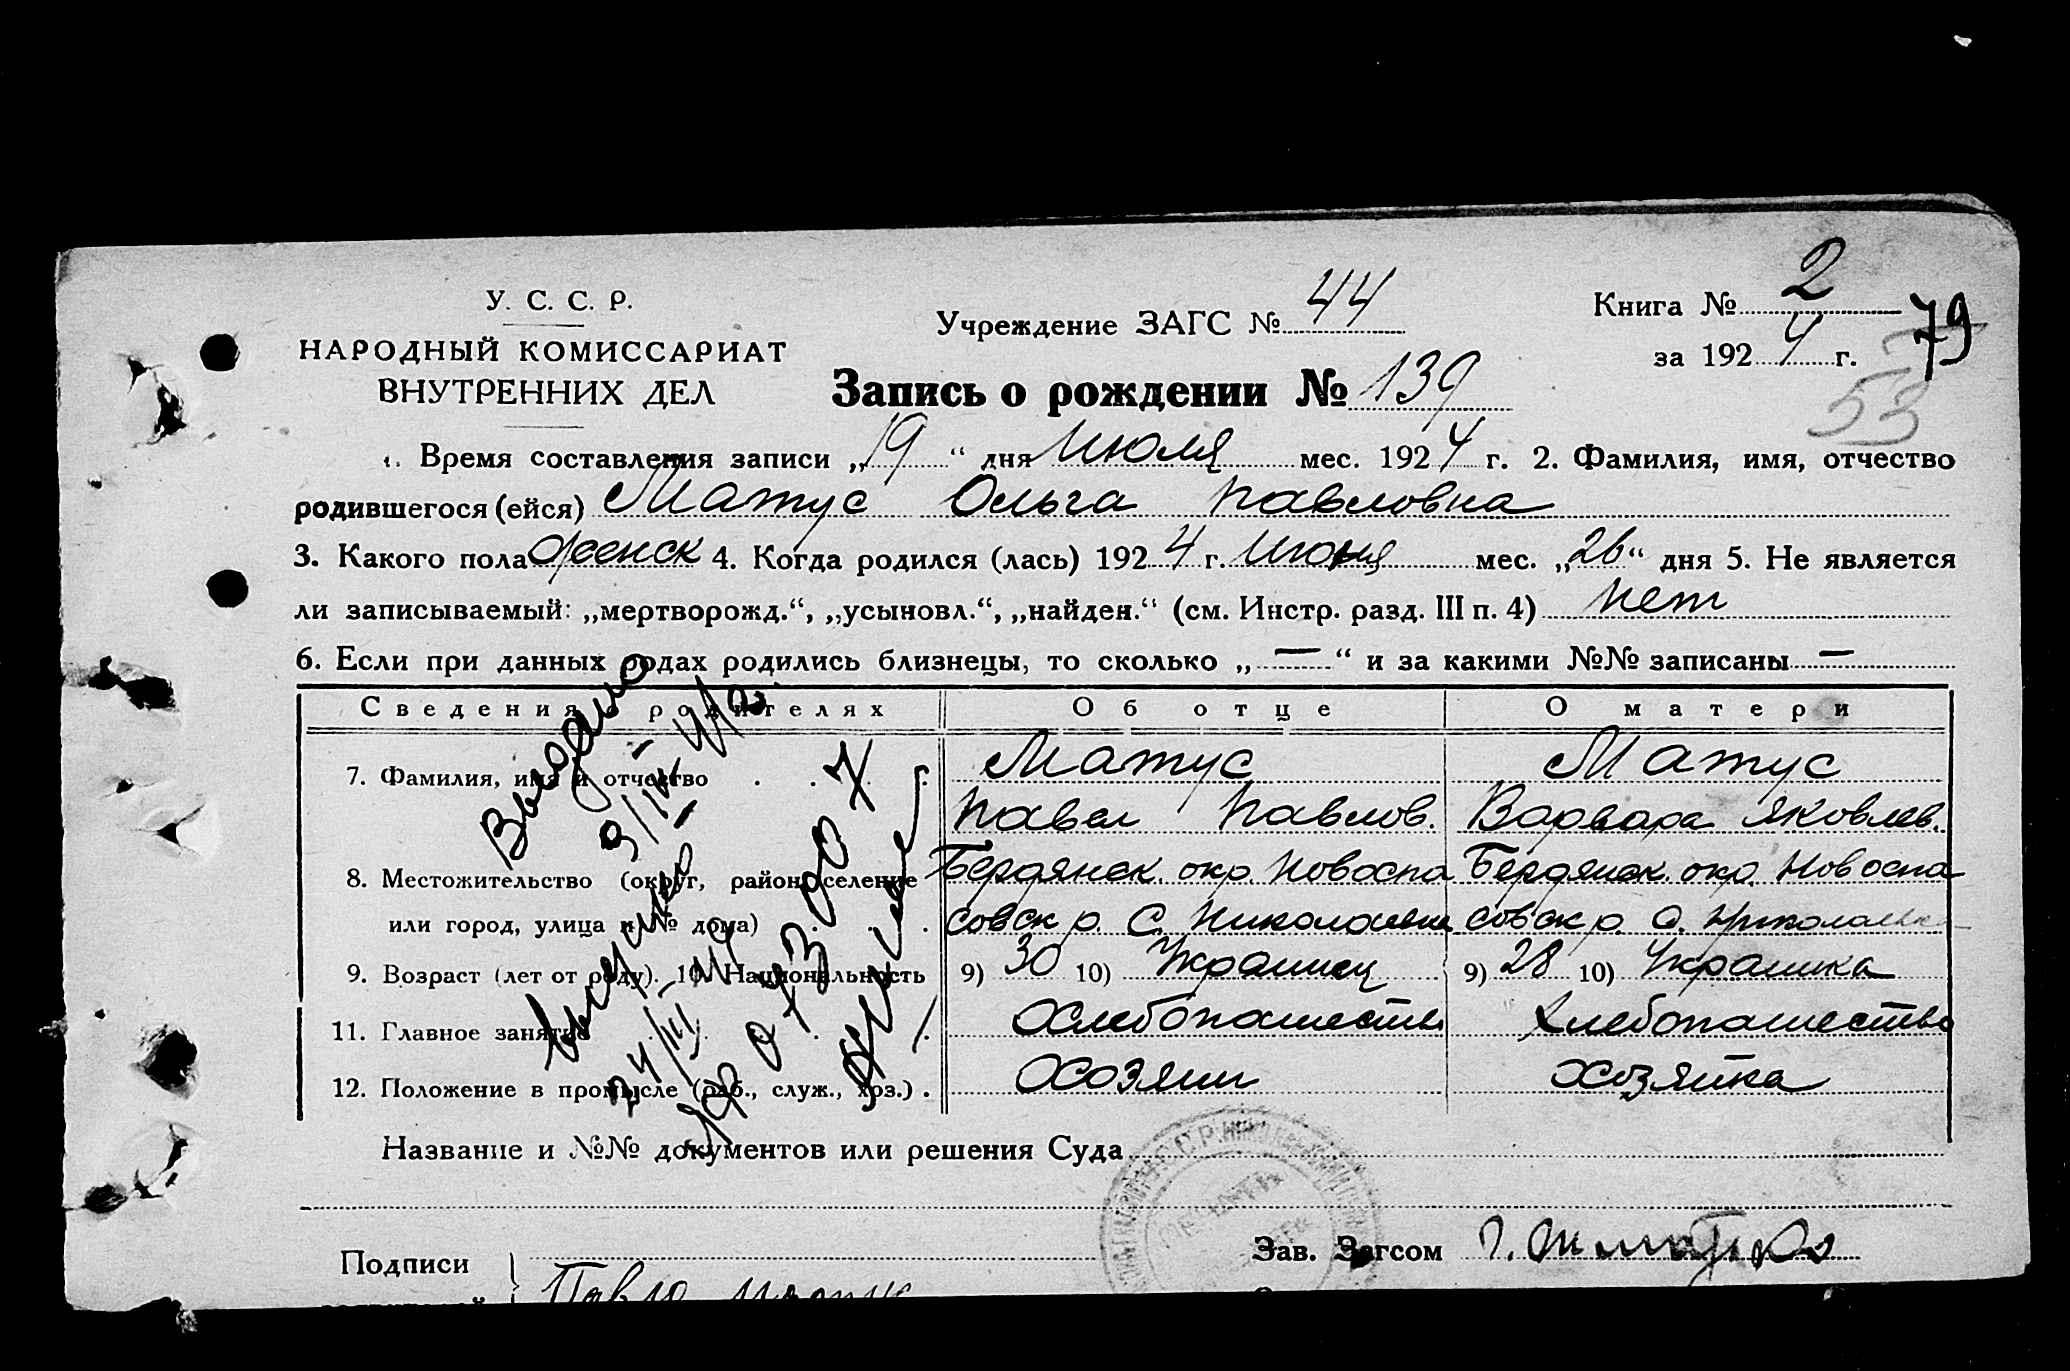 У. С. С. Р.
НАРОДНЫЙ КОМИССАРИАТ
ВНУТРЕННИХ ДЕЛ
Учреждение ЗАГС № 44
Книга № 2
за 1924 г.
79
53
Запись о рождении № 139
1. Время составления записи „19“ дня Июля мес. 1924 г. 2. Фамилия, имя, отчество
родившегося (ейся) Матус Ольга Павловна
3. Какого пола женск 4. Когда родился (лась) 1924 г. Июня мес. „26“ дня 5. Не является
ли записываемый: „мертворожд.“, „усыновл.“, „найден.“ (см. Инстр. разд. III п. 4) Нет
6. Если при данных родах родились близнецы, то сколько „—“ и за какими №№ записаны —
Сведения о родителях Об отце О матери
7. Фамилия, имя и отчество Матус Матус
Павел Павлов. Варвара Яковлев.
8. Местожительство (округ, район, селение Бердянск. окр. Новоспа Бердянск. окр. Новоспа
или город, улица и № дома) совск р. С. Николаевка совск р. С. Николаевка
9. Возраст (лет от роду). 10. Национальность 9) 30 10) Украинец 9) 28 10) Украинка
11. Главное занятие Хлебопашество Хлебопашество
12. Положение в промысле (раб., служ., хоз.) Хозяин Хозяйка
Выдано
Название и №№ документов или решения Суда
Подписи
Зав. Загсом
Павло Матус